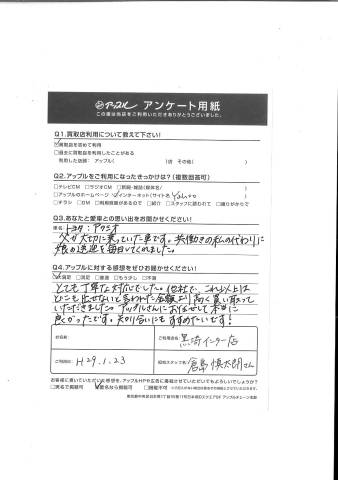 アップル アンケート用紙
この度は当店をご利用いただきありがとうございました。
Q1.買取店利用について教えて下さい!
買取店を初めて利用
□過去に買取店を利用したことがある
利用した店舗: アップル( )店 その他( )
Q2.アップルをご利用になったきっかけは?(複数回答可)
□テレビCM □ラジオCM □新聞・雑誌(媒体名/ )
□アップルのホームページ インターネット(サイト名 Yahoo )
□チラシ □DM □利用経験があるので □紹介 □スタッフに誘われて □通りがかりで
Q3.あなたと愛車との思い出をお聞かせください!
車名 トヨタ:アクシオ
父が大切に乗っていた車です。共働きの私の代わりに
娘の送迎を毎日してくれました。
Q4.アップルに対する感想をぜひお聞かせください!
満足 □満足 □普通 □もう少し □不満
とても丁寧な対応でした。他社で、これ以上は
どこも出せないと言われた金額より高く買い取って
いただきました。アップルさんにおまかせして本当に
良かったです。知り合いにもすすめたいです!
お名前:
ご利用店名: 黒埼インター店
ご利用日: H29.1.23
担当スタッフ名: 倉島慎太朗さん
お客様に書いていただいた感想を、アップルHPや広告に掲載させていただいてもよろしいでしょうか?
□実名で掲載可 匿名なら掲載可 □掲載不可